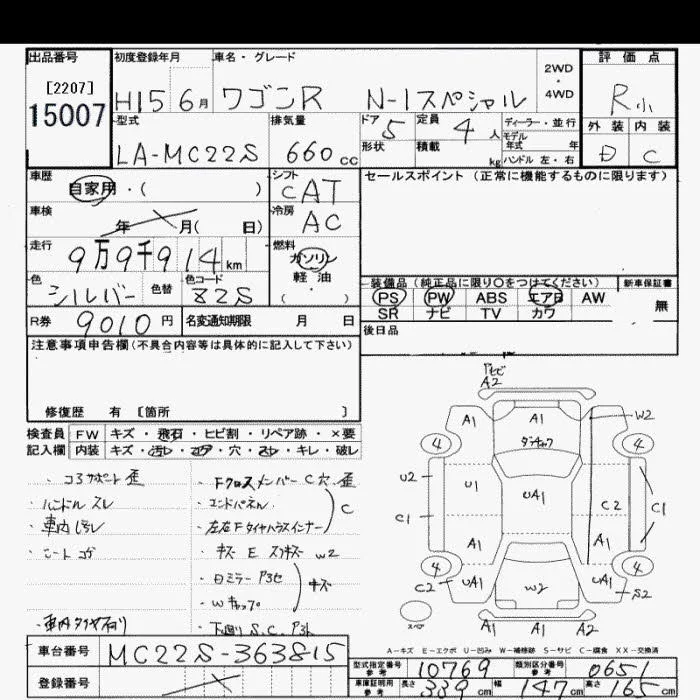 出品番号 初度登録年月 車名・グレード 2WD・4WD 評価点
[2207]
15007
H15 6月 ワゴンR N-1スペシャル R小
型式 排気量 ドア 5 定員 4人 ディーラー・並行 外装 内装
モデル年式 年
LA-MC22S 660cc 形状 積載 kg ハンドル 左・右 D C
車歴 シフト セールスポイント (正常に機能するものに限ります)
自家用・( ) CAT
車検 冷房
年 月( 日) AC
走行 燃料
9万9千914km ガソリン
軽・油
( ・ )
色 色替 色コード 装備品(純正品に限り○をつけてください) 新車保証書
シルバー Z2S PS PW ABS エアB AW 無
SR ナビ TV カワ
R券 9010円 名変通知期限 月 日
後日品
注意事項申告欄(不具合内容等は具体的に記入して下さい)
修復歴 有 [箇所 ]
検査員 FW キズ・飛石・ヒビ割・リペア跡・×要
記入欄 内装 キズ・汚レ・コゲ・穴・スレ・キレ・破レ
・コアサポート 歪
・ハンドル スレ
・車内 汚レ
・シート コゲ
・車内タイヤ有り
・Fクロスメンバー C 穴 歪
・エンドパネル C
・左右Fタイヤハウスインナー
・キズ E W2
・Wキャップ キズ
・下廻り S.C.
A2
A1 A1 W2
4 4
U2 U1 UA1 C2 C1
C1
A1 A1
4 4
C2 UA1 W2 UA1 S2
スペア
A1 A1 A2
A-キズ E-エクボ U-凹み W-補修跡 S-サビ C-腐食 XX-交換済
車台番号 MC22S-363815
型式指定番号 参考 10769 類別区分番号 参考 0651
登録番号
車庫証明用 参考 長さ 339cm 幅 147cm 高さ 165cm